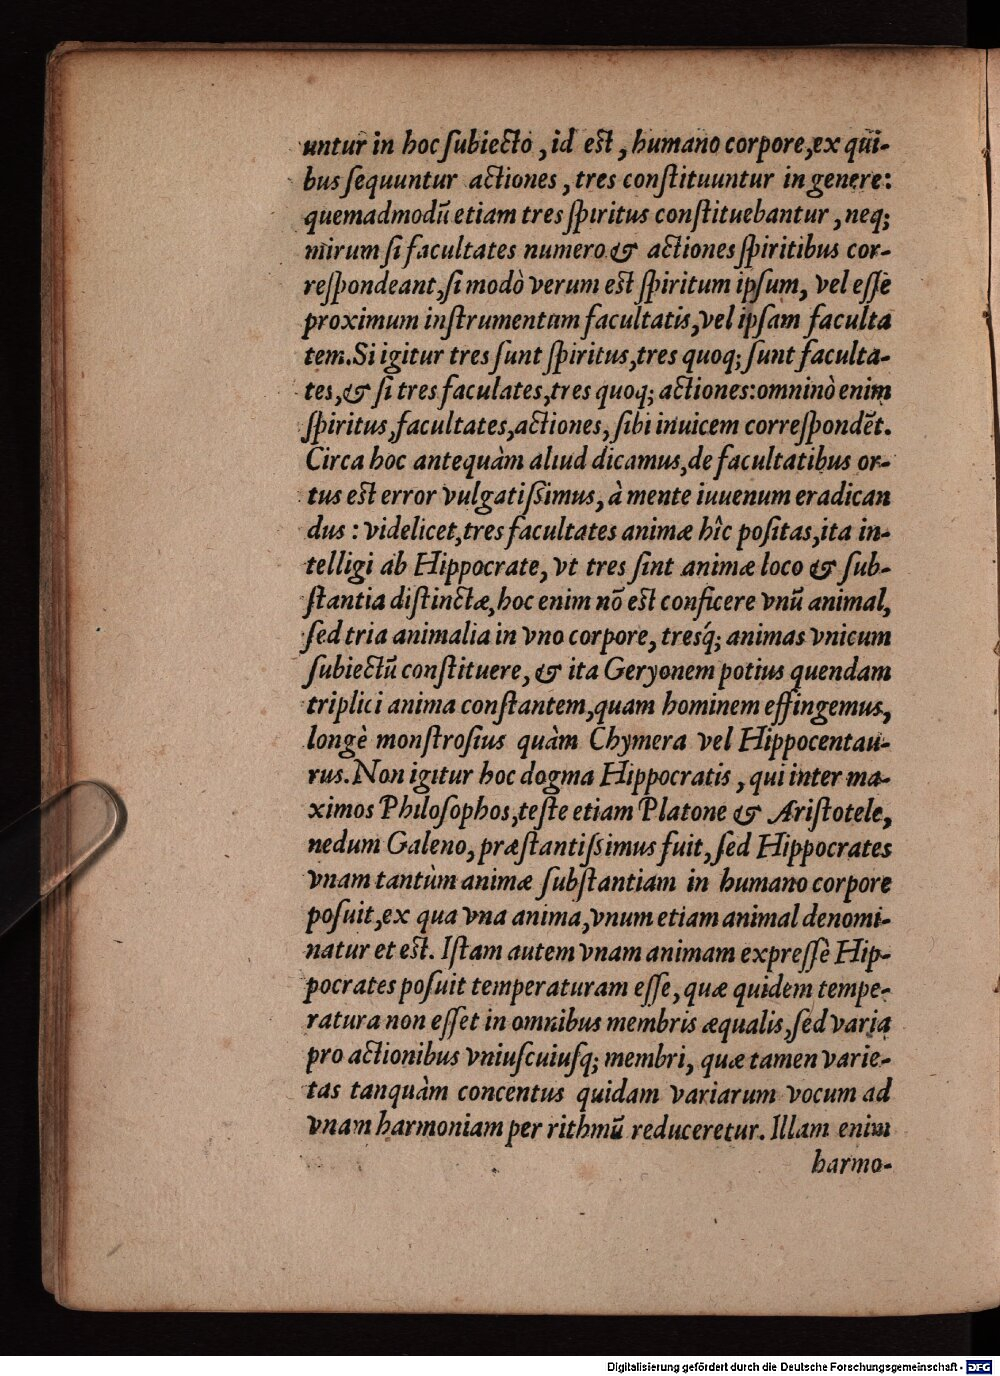 untur in hoc ſubiecto, id est, humano corpore, ex qui-
bus ſequuntur actiones, tres conſtituuntur in genere:
quemadmodū etiam tres ſpiritus conſtituebantur, neq;
mirum ſi facultates numero & actiones ſpiritibus cor-
reſpondeant, ſi modò verum est ſpiritum ipſum, vel eſſe
proximum inſtrumentum facultatis, vel ipſam faculta
tem. Si igitur tres ſunt ſpiritus, tres quoq; ſunt faculta-
tes, & ſi tres faculates, tres quoq; actiones: omninò enim
ſpiritus, facultates, actiones, ſibi inuicem correſpondēt.
Circa hoc antequàm aliud dicamus, de facultatibus or-
tus est error vulgatiſsimus, à mente iuuenum eradican
dus: videlicet, tres facultates animæ hîc poſitas, ita in-
telligi ab Hippocrate, vt tres ſint animæ loco & ſub-
ſtantia diſtinctæ, hoc enim nō est conficere vnū animal,
ſed tria animalia in vno corpore, tresq́; animas vnicum
ſubiectū conſtituere, & ita Geryonem potius quendam
triplici anima conſtantem, quam hominem effingemus,
longè monſtroſius quàm Chymera vel Hippocentau-
rus. Non igitur hoc dogma Hippocratis, qui inter ma-
ximos Philoſophos, teſte etiam Platone & Ariſtotele,
nedum Galeno, præſtantiſsimus fuit, ſed Hippocrates
vnam tantùm animæ ſubſtantiam in humano corpore
poſuit, ex qua vna anima, vnum etiam animal denomi-
natur et est. Iſtam autem vnam animam expreſſè Hip-
pocrates poſuit temperaturam eſſe, quæ quidem tempe-
ratura non eſſet in omnibus membris æqualis, ſed varia
pro actionibus vniuſcuiuſq; membri, quæ tamen varie-
tas tanquàm concentus quidam variarum vocum ad
vnam harmoniam per rithmū reduceretur. Illam enim
harmo-
Digitalisierung gefördert durch die Deutsche Forschungsgemeinschaft - DFG